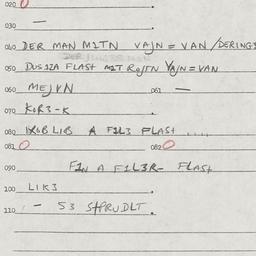 020
030 —
040 DER MAN MITN VAJN = VAN / DERING
050 DUS IZA FLASH MIT ROJTN VAJN = VAN
060 MEJVN 061 —
070 KOR3 - K
080 A FIL3 FLASH .....
081 082
090 FIN A FIL3R- FLASH
100 LIK3
110 - 53 SHPRUDLT